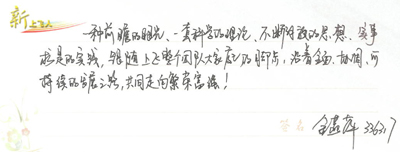 新上飞人
一种前瞻的眼光、一套科学的理论、不断解放的思想、实事
求是的实践，跟随上飞整个团队大家庭的脚步，沿着全面、协调、可
持续的发展之路，共同走向繁荣富强！
签名 336317